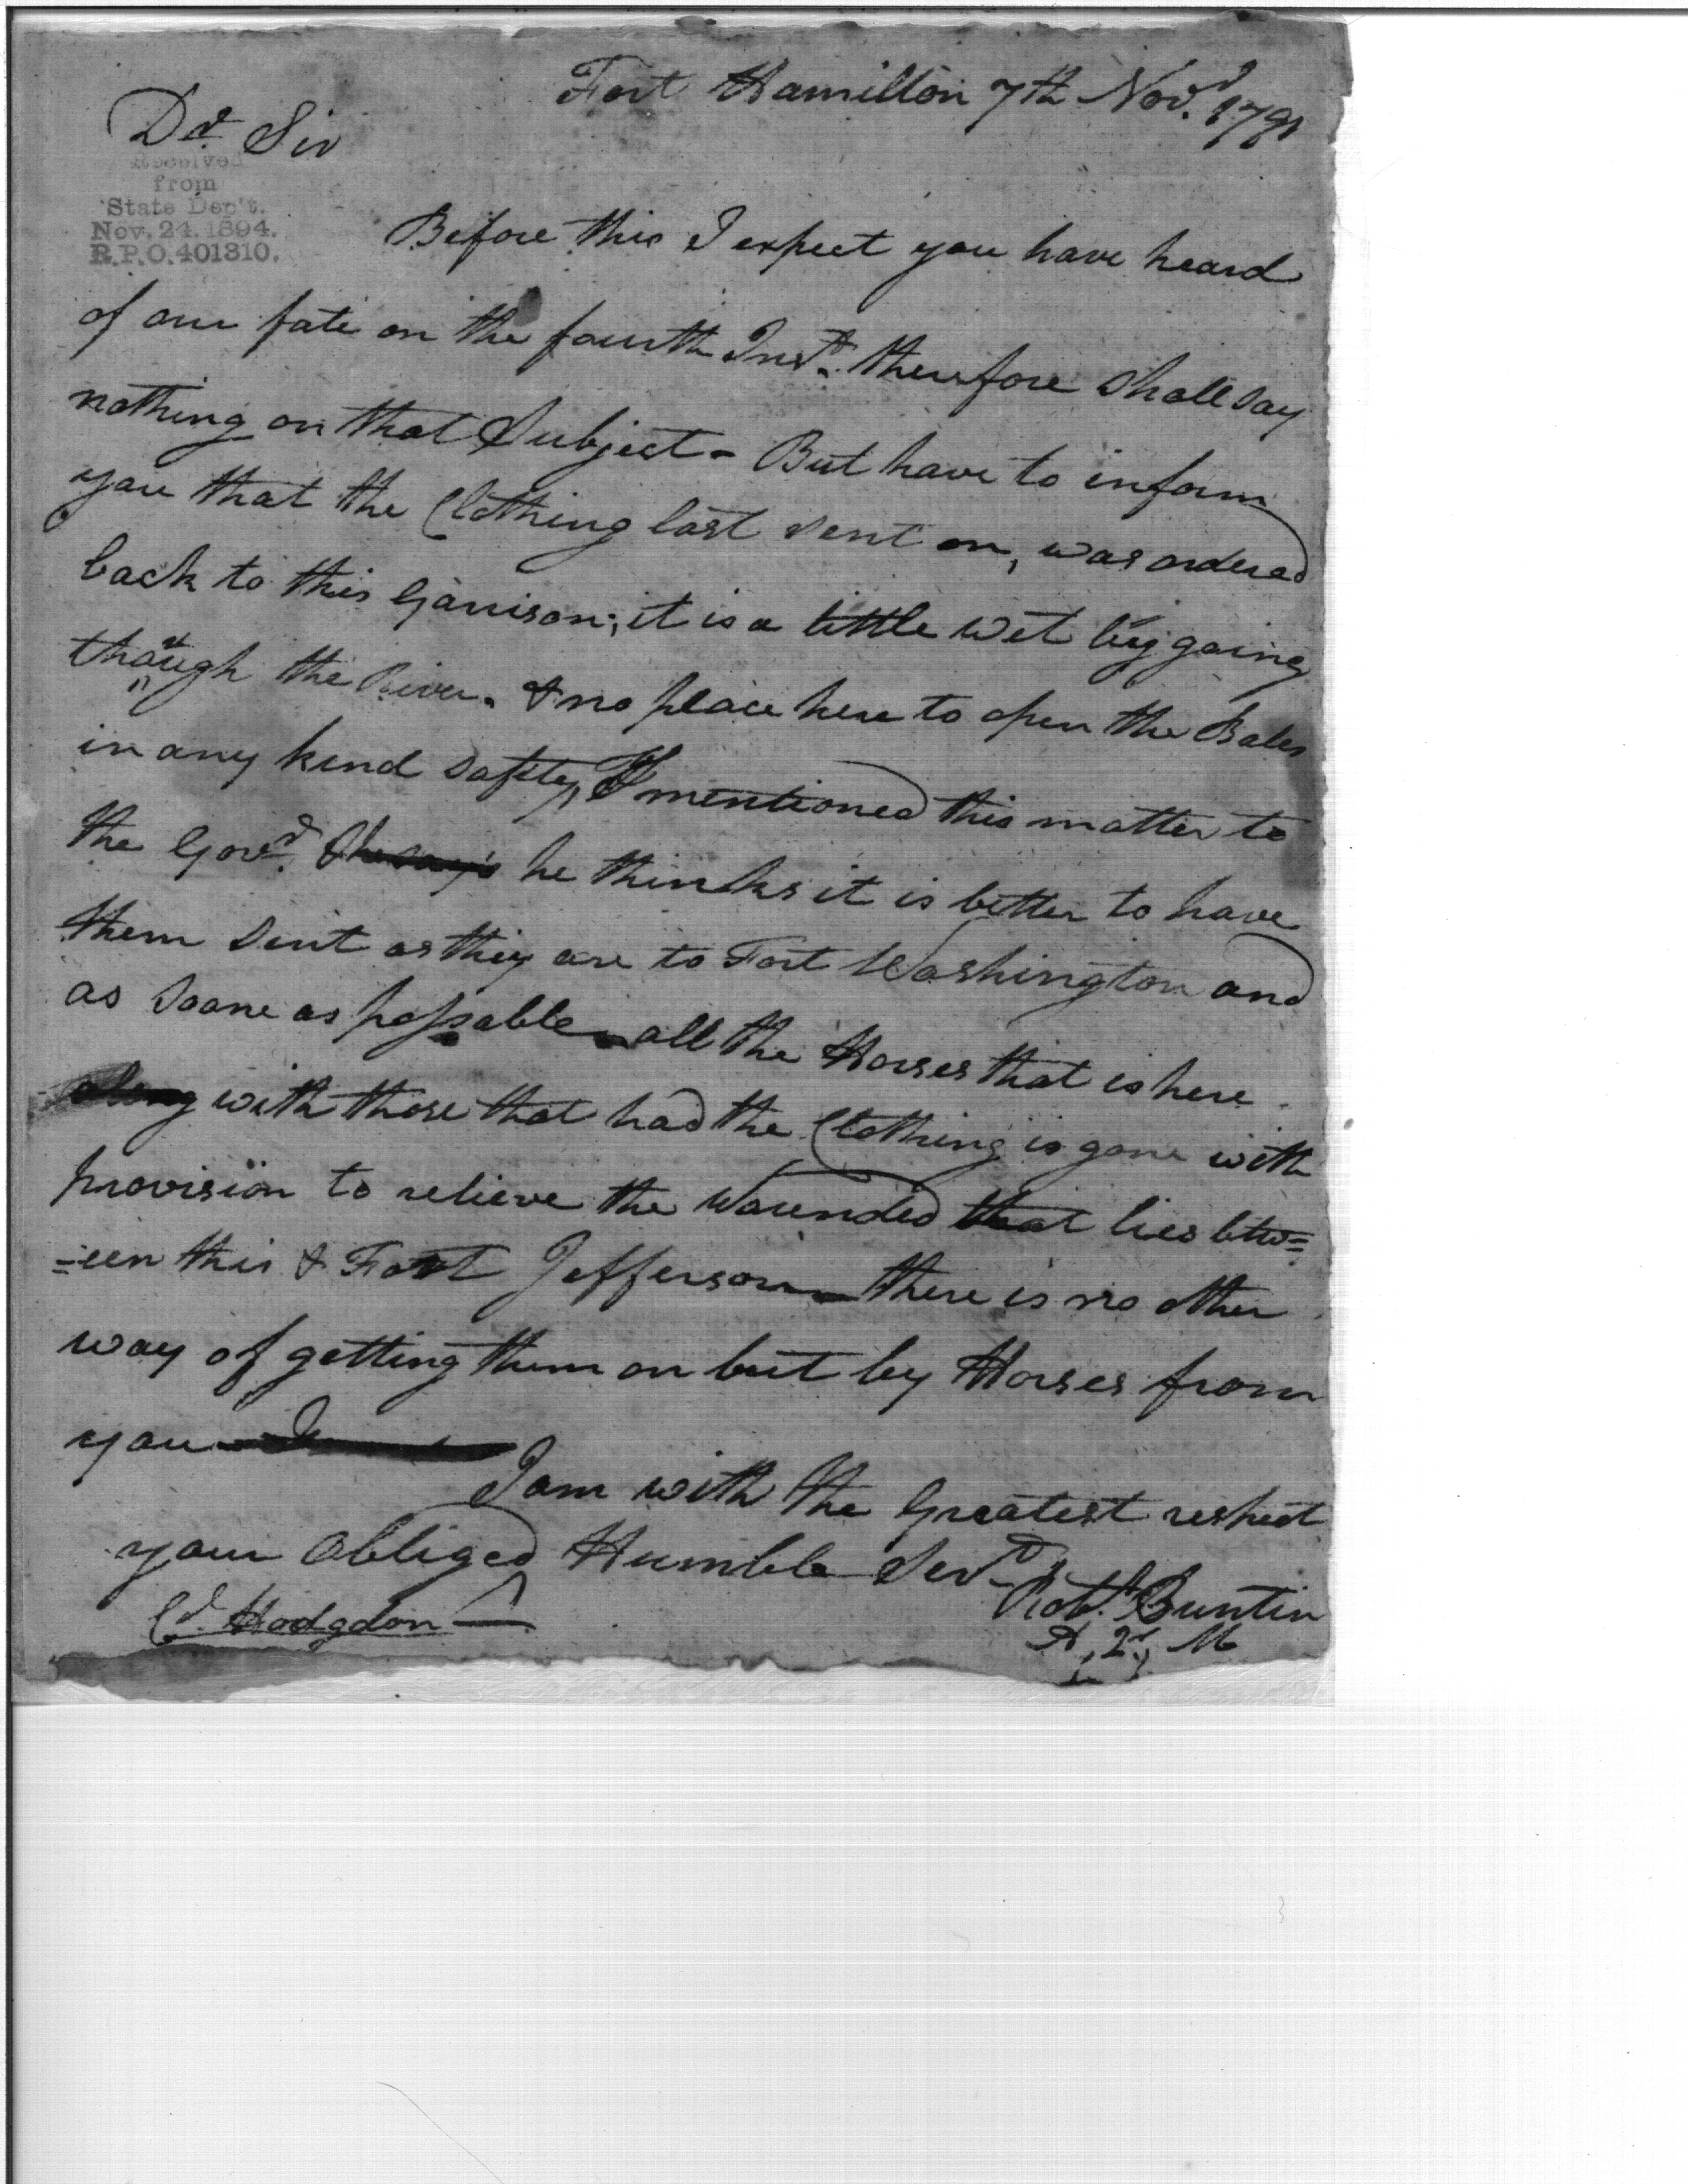 Fort Hamilton 7th Novr. 1791
Dr. Sir
Received
from
State Dep't.
Nov. 24. 1894.
R.P.O. 401310.
Before this I expect you have heard
of our fate on the fourth Inst. therefore shall say
nothing on that Subject - But have to inform
you that the Clothing last sent on, was ordered
back to this Garrison; it is a little wet by going
through the River. & no place here to open the Bales
in any kind safety, I mentioned this matter to
the Govr. he thinks it is better to have
them sent as they are to Fort Washington and
as soone as possable all the Horses that is here
along with those that had the Clothing is gone with
provision to relieve the Wounded that lies btw=
=een this & Fort Jefferson there is no other
way of getting them on but by Horses from
you
I am with the Greatest respect
your Obliged Humble Servt.
Robt. Buntin
A, Qr, M
Cl. Hodgdon